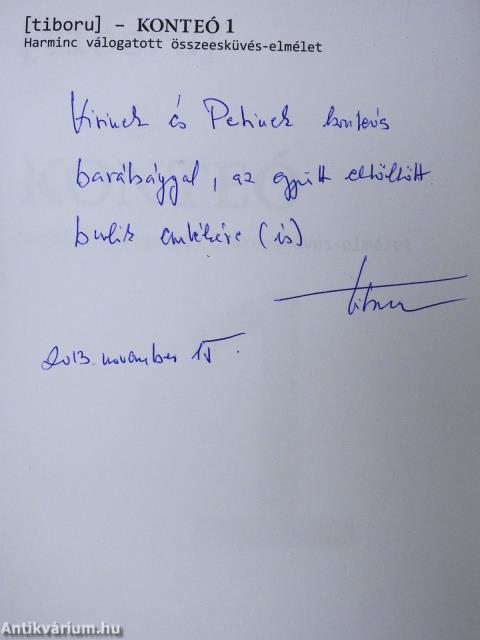 [tiboru] – KONTEÓ 1
Harminc válogatott összeesküvés-elmélet
és Petinek konteós
barátsággal, az együtt eltöltött
bulik emlékére (is)
2013. november 15.
Antikvárium.hu